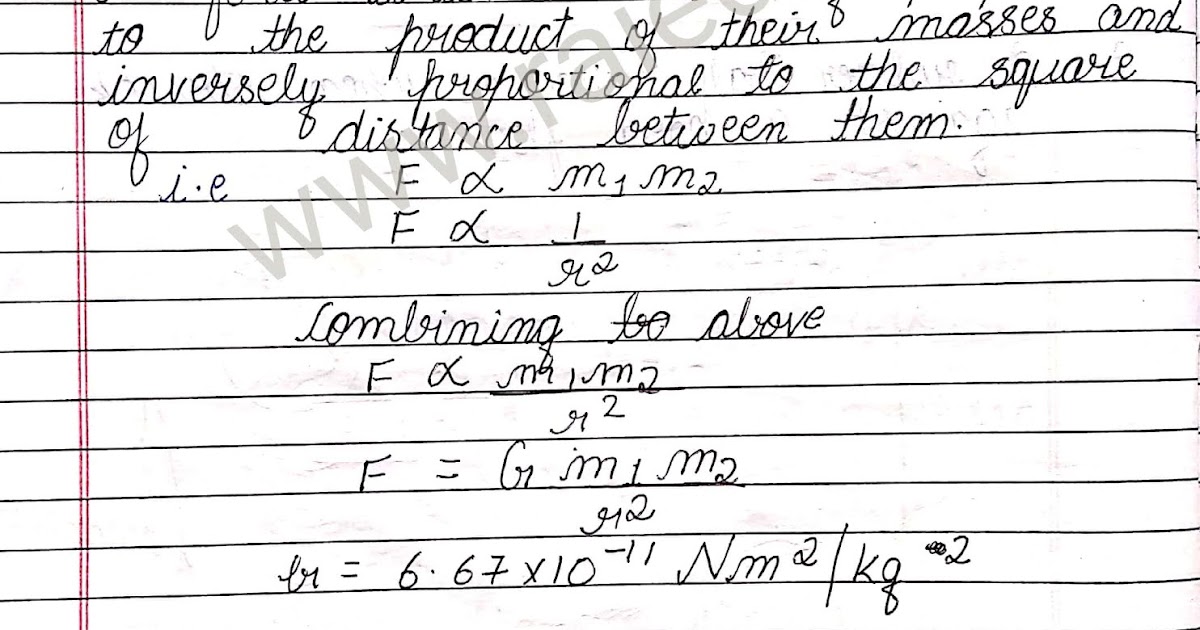 to the product of their masses and
inversely proportional to the square
of distance between them.
i.e F ∝ m₁m₂
F ∝ 1/r²
Combining above
F ∝ m₁m₂/r²
F = G m₁m₂/r²
G = 6.67×10⁻¹¹ Nm²/kg²